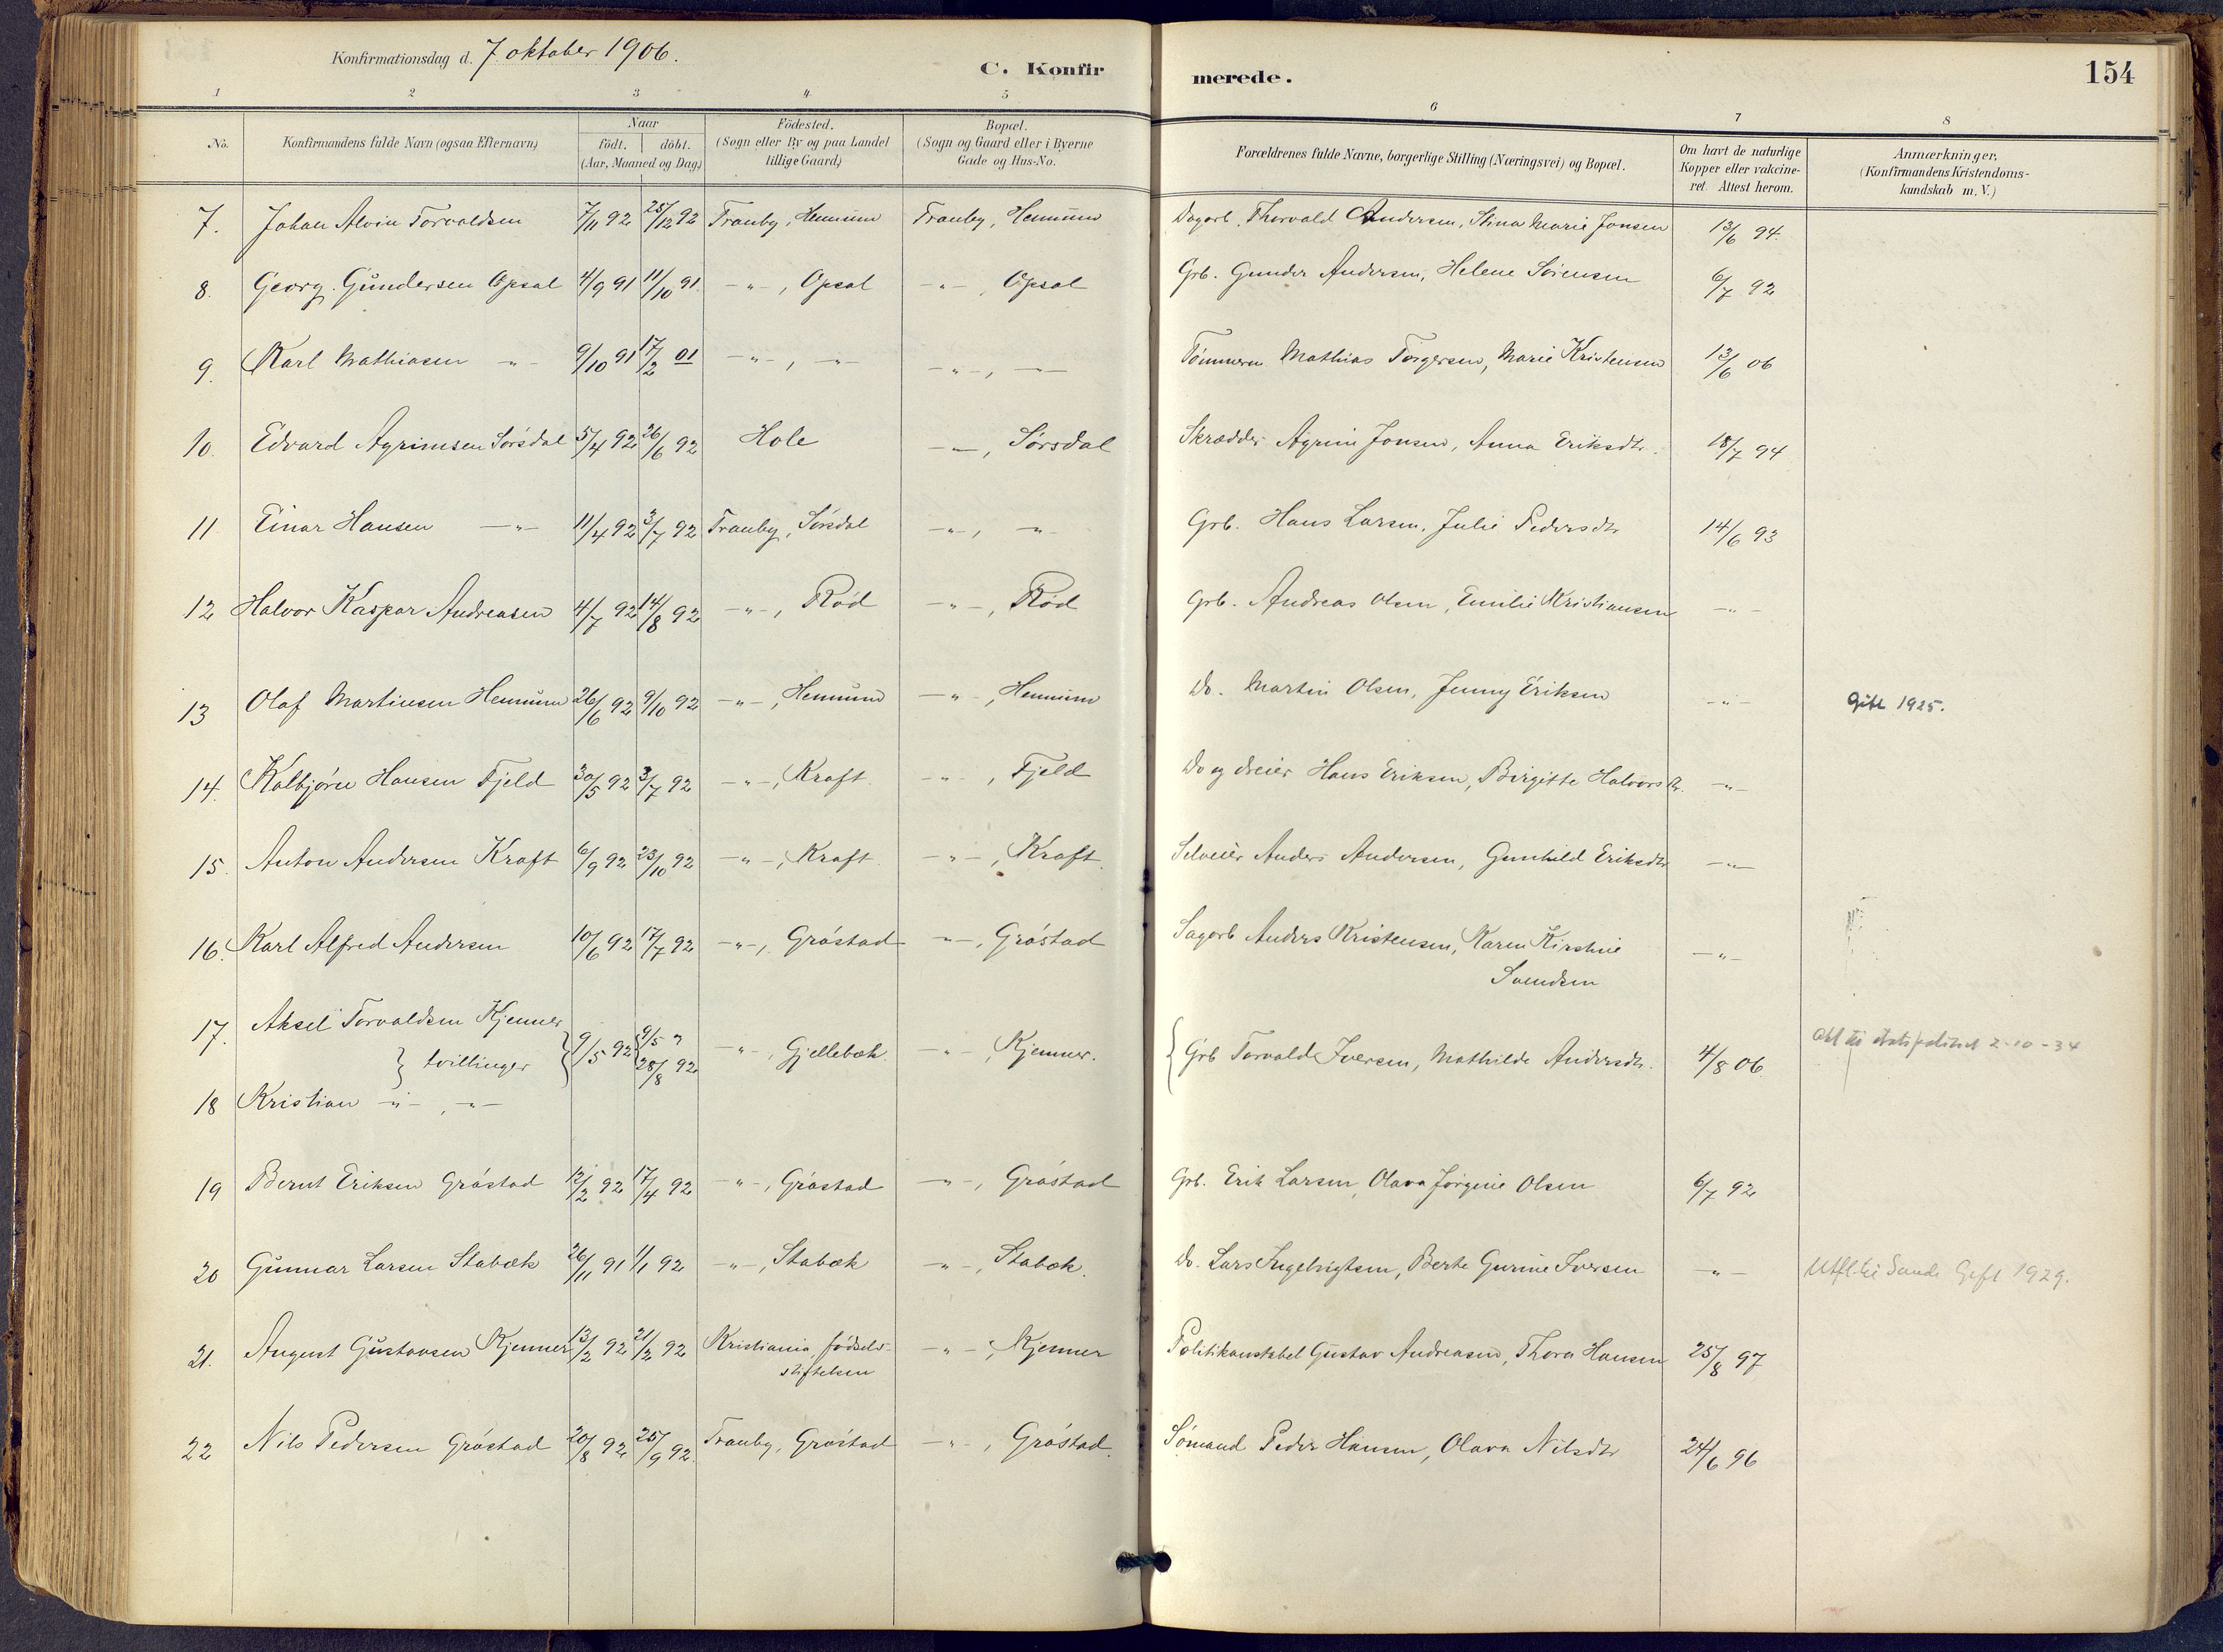 Konfirmationsdag d. 7. oktober 1906.
C. Konfirmerede.
154
1 2 3 4 5 6 7 8
No. Konfirmandens fulde Navn (ogsaa Efternavn) Naar födt. döbt. (Aar, Maaned og Dag) Födested. (Sogn eller By og paa Landet tillige Gaard) Bopæl. (Sogn og Gaard eller i Byerne Gade og Hus-No. Forældrenes fulde Navne, borgerlige Stilling (Næringsvei) og Bopæl. Om havt de naturlige Kopper eller vakcineret. Attest herom. Anmærkninger. (Konfirmandens Kristendomskundskab m. V.)
7. Johan Alvin Torvaldsen 7/11 92 25/12 92 Tranby, Hennum Tranby, Hennum Dagarb. Thorvald Andersen, Stina Marie Jonsen 13/6 94.
8. Georg Gundersen Opsal 4/9 91 11/10 91. -"-, Opsal -"-, Opsal Grb. Gunder Andersen, Helene Sörensen 6/7 92
9. Karl Mathiasen -"- 9/10 91 17/2 01 -"-, -"- -"-, -"- Tömmerm Mathias Torgersen, Marie Kristensen 13/6 06
10. Edvard Agrimsen Sörsdal 5/4 92 26/6 92 Hole -"-, Sörsdal Skrædder Agrim Jonsen, Anna Eriksdtr. 18/7 94
11 Einar Hansen -"- 11/4 92 3/7 92 Tranby, Sörsdal -"-, -"- Grb. Hans Larsen, Julie Pedersdtr 14/6 93
12 Halvor Kaspar Andreasen 4/7 92 14/8 92 -"-, Röd -"-, Röd Grb. Andreas Olsen, Emilie Kristiansen -"-
13 Olaf Martinsen Hennum 26/6 92 9/10 92 -"-, Hennum -"-, Hennum Do. Martin Olsen, Jenny Eriksen -"- Gift 1925.
14. Kolbjörn Hansen Fjeld 30/5 92 3/7 92 -"-, Kraft. -"-, Fjeld Do og dreier Hans Eriksen, Birgitte Halvorsdtr. -"-
15. Anton Andersen Kraft 6/9 92 23/10 92 -"-, Kraft. -"-, Kraft. Selveier Anders Andersen, Gunhild Eriksdtr -"-
16. Karl Alfred Andersen 10/6 92 17/7 92 -"-, Gröstad -"-, Gröstad Sagarb Anders Kristensen, Karen Kirstine
Svendsen -"-
17. Aksel Torvaldsen Kjenner
} tvillinger { 9/5 92 { 9/5 ? 28/8 92 -"-, Gjellebæk. -"-, Kjenner. { Grb Torvald Iversen, Mathilde Andersdtr. 4/8 06. 2-10-34
18 Kristian -"-, -"-
19 Bernt Eriksen Gröstad 12/2 92 17/4 92 -"-, Gröstad -"-, Gröstad Grb. Erik Larsen, Olava Jörgine Olsen 6/7 92
20 Gunnar Larsen Stabæk 26/11 91 1/1 92 -"-, Stabæk -"-, Stabæk. Do. Lars Ingebrigtsen, Berte Gurine Iversen -"- Utfl. til Sande Gift 1929.
21. August Gustavsen Kjenner 13/2 92 21/2 92 Kristiania, födsels-
stiftelsen -"-, Kjenner Politikonstabel Gustav Andreasen, Thora Hansen 25/8 97
22 Nils Pedersen Gröstad 20/8 92 25/9 92. Tranby, Gröstad -"-, Gröstad. Sömand Peder Hansen, Olava Nilsdtr 24/6 96